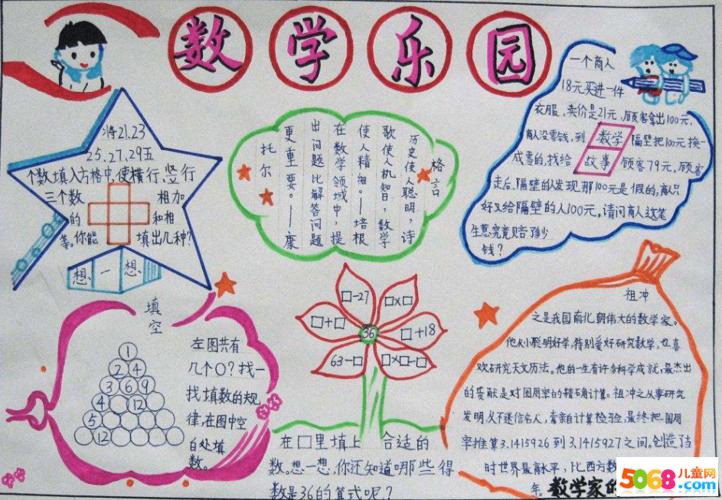 数学乐园
将21,23
25,27,29五
个数填入方格中,使横行,竖行
三个数 相加
的 和相
等。你能 填出几种?
想一想
格言
历史使人聪明,诗
歌使人机知,数学
使人精细。——培根
在数学领域中,提
出问题比解答问题
更重要。——康
托尔
一个商人
18元买进一件
衣服,卖价是21元,顾客拿出100元,
商人没零钱,到 数学 隔壁把100元换
成零的,找给 故事 顾客79元,顾客
走后,隔壁的发现那100元是假的,商人只
好又给隔壁的人100元。请问商人这笔
生意究竟赔多少
钱?
填空
1
2 4
3 6 9
4 12
5
12
在图共有
几个〇?找一
找填数的规
律,在图中空
白处填
数。
□-27
□×□
□+□
36
□+18
63-□
□×□-□
在□里填上 合适的
数。想一想,你还知道哪些得
数是36的算式呢?
祖冲
之是我国南北朝伟大的数学家。
他从小聪明好学,特别爱好研究数学,也喜
欢研究天文历法。他的一生有许多科学成就,最杰出
的贡献是对圆周率的精确计算。祖冲之从事研究
发明,从不迷信名人,常亲自计算检验,最终把圆周
率推算3.1415926到3.1415927之间,创造了当
时世界最高水平,比西方数
年
数学家的
5068儿童网